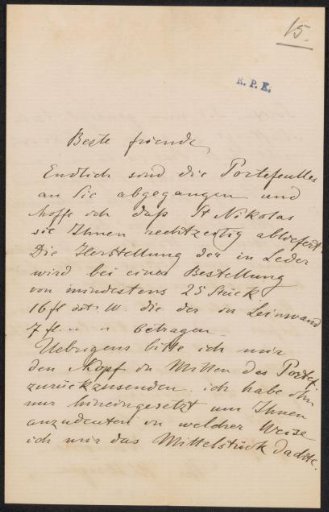 15.
R. P. K.
Beste friende,
Endlich sind die Portefeulles
an Sie abgegangen und
hoffe ich daß St Nikolas
sie Ihnen rechtzeitig abliefert
Die Herstellung der in Leder
wird bei einer Bestellung
von mindestens 25 Stück
16 fl die der in Leinwand
7 fl " " betragen.
Uebrigens bitte ich mir
den Kopf in Mitten des Portef.
zurückzusenden. ich habe ihn
nur hineingesetzt um Ihnen
anzudeuten in welcher Weise
ich mir das Mittelstück dachte.